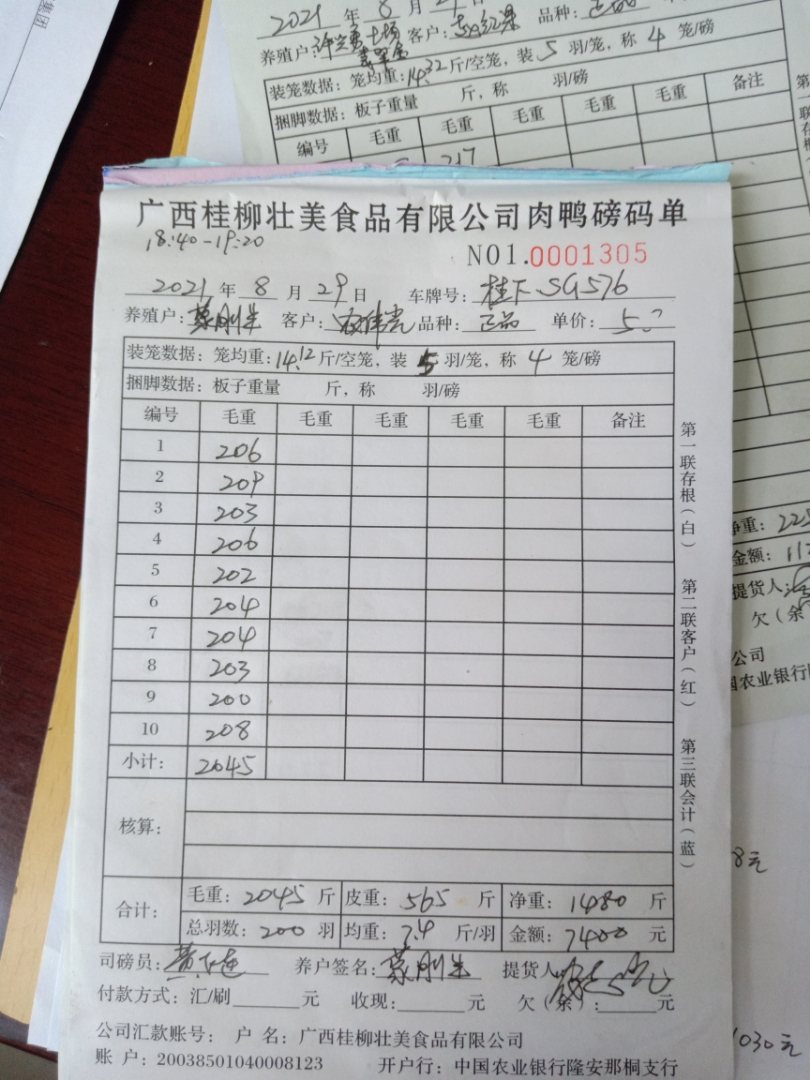 集团
2021 年 8 月
客户: 品种: 正品
养殖户:
装笼数据: 笼均重: 14.32 斤/空笼, 装 5 羽/笼, 称 4 笼/磅
捆脚数据: 板子重量 斤, 称 羽/磅
编号 毛重 毛重 毛重 毛重 毛重 备注
217
广西桂柳壮美食品有限公司肉鸭磅码单
18:40-19:20
NO1.0001305
2021 年 8 月 29 日 车牌号: 桂F SG576
养殖户: 蒙刚生 客户: 品种: 正品 单价: 5.
装笼数据: 笼均重: 14.12 斤/空笼, 装 5 羽/笼, 称 4 笼/磅
捆脚数据: 板子重量 斤, 称 羽/磅
编号 毛重 毛重 毛重 毛重 毛重 备注
1 206
2 209
3 203
4 206
5 202
6 204
7 204
8 203
9 200
10 208
小计: 2045
核算:
合计: 毛重: 2045 斤 皮重: 565 斤 净重: 1480 斤
总羽数: 200 羽 均重: 7.4 斤/羽 金额: 7400 元
司磅员: 养户签名: 蒙刚生 提货人
付款方式: 汇/刷 元 收现: 元 欠(余): 元
公司汇款账号: 户 名: 广西桂柳壮美食品有限公司
账 户: 20038501040008123 开户行: 中国农业银行隆安那桐支行
第一联存根(白)
第二联客户(红)
第三联会计(蓝)
净重: 225
金额: 112
提货人:
欠(余
公司
国农业银行隆
8元
1030元